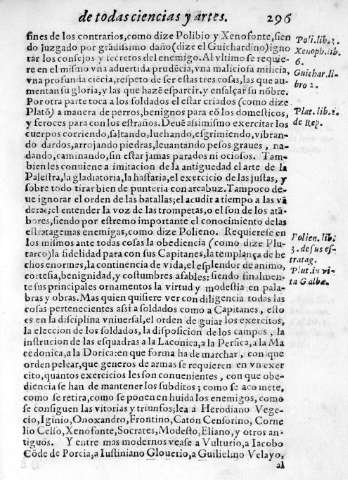 de todas ciencias y artes. 296
fines de los contrarios, como dize Polibio y Xenofonte, sien
do juzgado por grádissimo daño (dize el Guichardino) igno
rar los consejos y secretos del enemigo. Al vltimo se requie
re en el mismo vna aduertida prudécia, vna maliciosa milicia,
vna profunda ciécia, respeto de ser estas tres cosas, las que au
mentan su gloria, y las que hazé esparzir, y ensalçar su nóbre.
Por otra parte toca a los soldados el estar criados (como dize
Plató) a manera de perros, benignos para có los domesticos,
y feroces para con los estraños. Deué assimismo exercitar los
cuerpos corriendo, saltando, luchando, esgrimiendo, vibran-
do dardos, arrojando piedras, leuantando pesos graues, na-
dando, caminando, sin estar jamas parados ni ociosos. Tam-
bien les conuiene a imitacion de la antiguedad el arte de la
Palestra, la gladiatoria, la hastaria, el exercicio de las justas, y
sobre todo tirar bien de punteria con arcabuz. Tampoco de-
ue ignorar el orden de las batallas; el acudir a tiempo a las vá
deras; el entender la voz de las trompetas, o el son de los atá-
bores, siendo por estremo importante el conocimiento de las
estratagemas enemigas, como dize Polieno. Requierese en
los mismos ante todas cosas la obediencia (como dize Plu-
tarco) la fidelidad para con sus Capitanes, la templança de he
chos enormes, la continencia de vida, el esplendor de animo,
cortesia, benignidad, y costumbres afables: siendo finalmen-
te sus principales ornamentos la virtud y modestia en pala-
bras y obras. Mas quien quisiere ver con diligencia todas las
cosas pertenecientes assi a soldados como a Capitanes, esto
es en la disciplina vniuersal, el orden de guiar los exercitos,
la eleccion de los soldados, la disposicion de los campos, la
instrucion de las esquadras a la Laconica, a la Persica, a la Ma
cedonica, a la Dorica: en que forma ha de marchar, con que
orden pelear, que generos de armas se requieren en vn exer
cito, quantos exercicios les son conuenientes, con que obe-
diencia se han de mantener los subditos; como se acomete,
como se retira, como se ponen en huida los enemigos, como
se consiguen las vitorias y triunfos; lea a Herodiano Vege-
cio, Iginio, Onoxandro, Frontino, Caton Censorino, Corne
lio Celso, Xenofonte, Socrates, Modesto, Eliano, y otros an-
tiguos. Y entre mas modernos vease a Vulturio, a Iacobo
Códe de Porcia, a Iustiniano Glouerio, a Guilielmo Velayo,
al
Poli. lib. 1.
Xenoph. lib.
6.
Guichar. li-
bro 2.
Plat. lib. 2.
de Rep.
Polien. lib.
5. de sus es-
tratag.
Plut. in vi-
ta Galbæ.